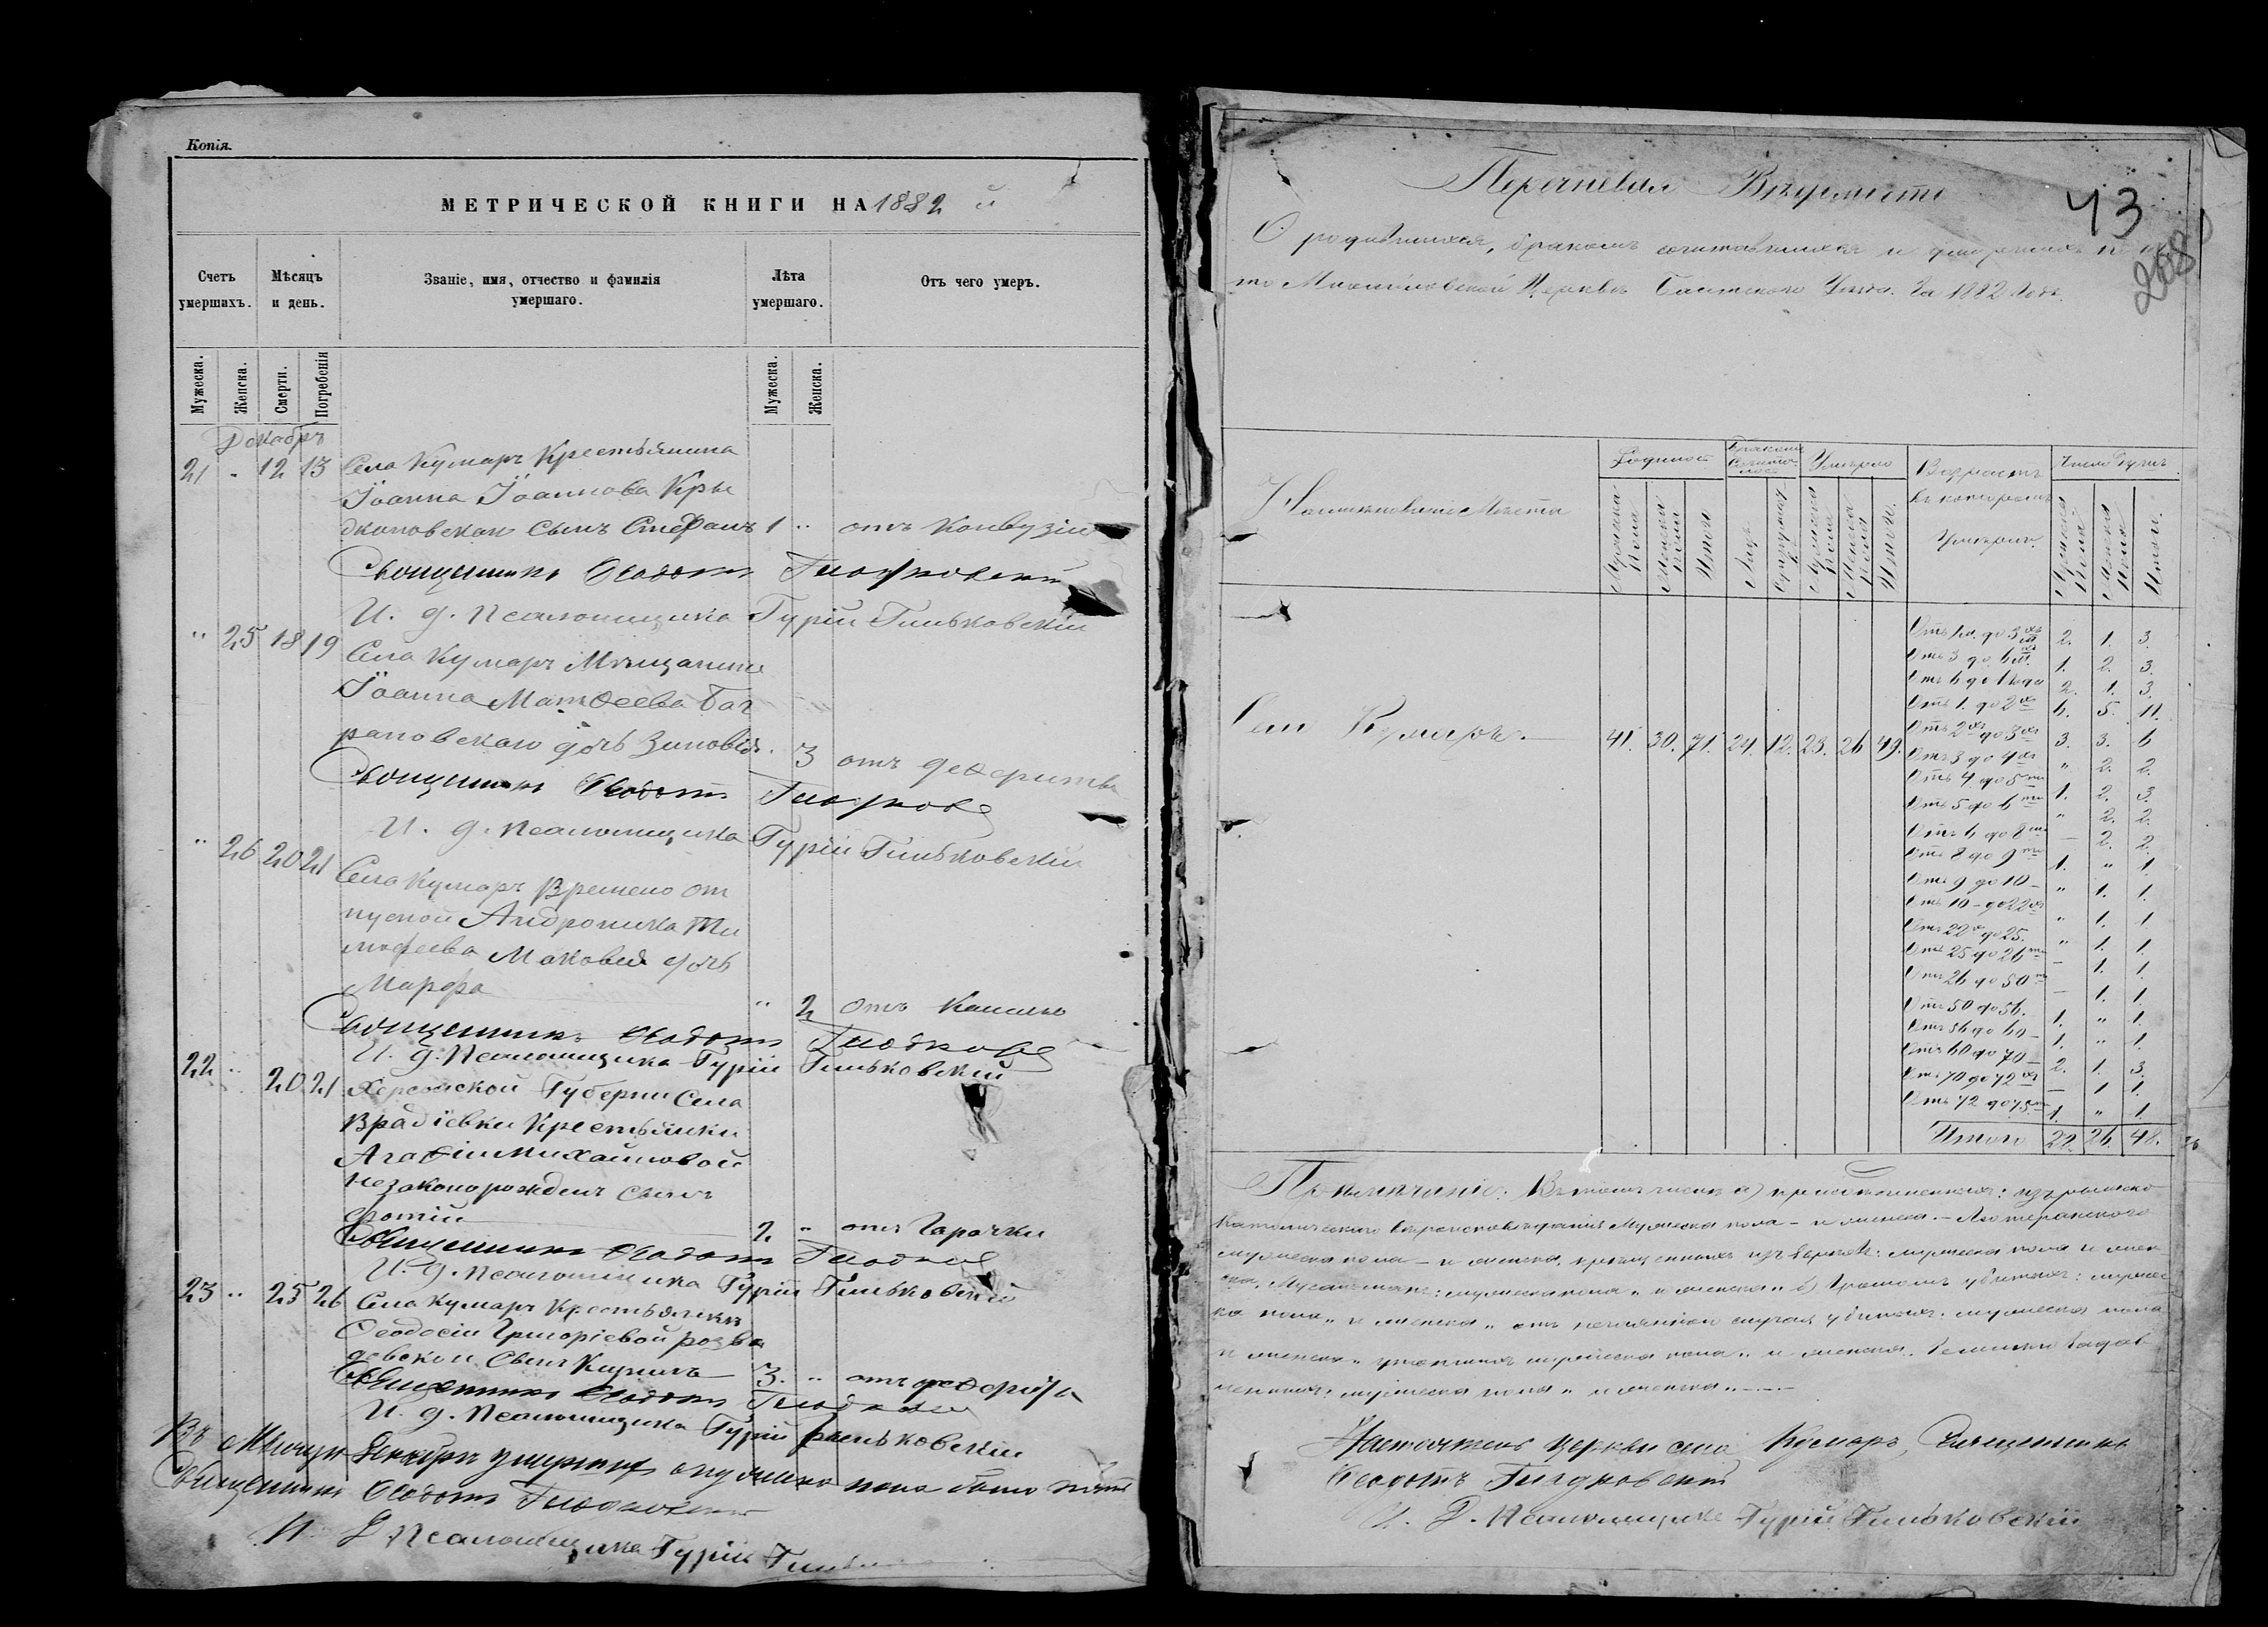 Копія.
МЕТРИЧЕСКОЙ КНИГИ НА 1882 й
Счетъ умершихъ.
Мѣсяцъ и день.
Званіе, имя, отчество и фамилія умершаго.
Лѣта умершаго.
Отъ чего умеръ.
Мужеска.
Женска.
Смерти.
Погребенія
Мужеска.
Женска.
Декабрь
21 " 12 13 Села Кумаръ Крестьянина
Іоанна Іоаннова
сынъ Стефанъ 1 " отъ
Священникъ Ѳеодотъ
И. д. Псаломщика Гурій Гиньковскій
" 25 18 19 Села Кумаръ Мѣщанина
Іоанна Матѳеева Баг
рановскаго дочь Зиновія. 3 отъ
Священникъ Ѳеодотъ
И. д. Псаломщика Гурій Гиньковскій
" 26 20 21 Села Кумаръ Временно от
пускной Андроника Ти
мофеева Маковея дочь
Марфа " 2 отъ
Священникъ Ѳеодотъ
И. д. Псаломщика Гурій Гиньковскій
22 " 20 21 Херсонской Губерніи Села
Врадіевки Крестьянки
Агаѳіи Михайловой
незаконорожденъ сынъ
Фотій 2 " отъ Горячки
Священникъ Ѳеодотъ
И. д. Псаломщика Гурій Гиньковскій
23 " 25 26 Села Кумаръ Крестьянки
Ѳеодосіи Григоріевой
сынъ Кирилъ 3. " отъ
Священникъ Ѳеодотъ
И. д. Псаломщика Гурій Гиньковскій
Въ Мѣсяцѣ Декабрѣ умершихъ пола было
Священникъ Ѳеодотъ
И. Д. Псаломщика Гурій
Перечневая Вѣдомость
43
268
О родившихся, бракомъ сочетавшихся и умершихъ по
Церкви Балтскаго Уѣзда. За 1882 Годъ.
Наименованіе Мѣста
Родилось
Бракомъ
Умерло
Возрастъ
въ которомъ
Умерли.
Число Душъ
Мужеска Пола
Женска Пола
Итого
Лицъ
Мужеска Пола
Женска Пола
Итого.
Мужеска Пола
Женска Пола
Итого.
Село Кумаръ. 41. 30. 71. 24. 12. 23. 26 49.
Отъ 1м. до 3хъ м. 2. 1. 3.
Отъ 3 до 6 м. 1. 2. 3.
Отъ 6 до 1 года 2. 1. 3.
Отъ 1. до 2хъ 6. 5. 11.
Отъ 2хъ до 3хъ 3. 3. 6
Отъ 3 до 4хъ " 2. 2.
Отъ 4 до 5ти 1. 2. 3.
Отъ 5 до 6ти " 2. 2.
Отъ 6 до 8ми — 2. 2.
Отъ 8 до 9ти 1. " 1.
Отъ 9 до 10 — " 1. 1.
Отъ 10 — до 22хъ " 1. 1.
Отъ 22хъ до 25. " 1. 1.
Отъ 25 до 26ти — 1. 1.
Отъ 26 до 50ти — 1. 1.
Отъ 50 до 56. 1. " 1.
Отъ 56 до 60 — 1. " 1.
Отъ 60 до 70 — 2. 1. 3.
Отъ 70 до 72хъ — 1 1.
Отъ 72 до 75ти 1. " 1.
Итого 22. 26. 48.
Примѣчаніе: Въ томъ числѣ а) присоединенныхъ: изъ римско
католическаго вѣроисповѣданія Мужеска пола — и женска. — Лютеранскаго
мужеска пола — и женска, крещенныхъ изъ Евреевъ: мужеска пола и жен
ска, Мусульманъ: мужеска пола " и женска " б) Громомъ убитыхъ: мужес
ка пола " и женска " отъ нечаянныхъ случаевъ убитыхъ: мужеска пола
и женска " мужеска пола " и женска.
мужеска пола " и женска " —
Настоятель церкви села Кумаръ, Священникъ
Ѳеодотъ
И. Д. Псаломщика Гурій Гиньковскій